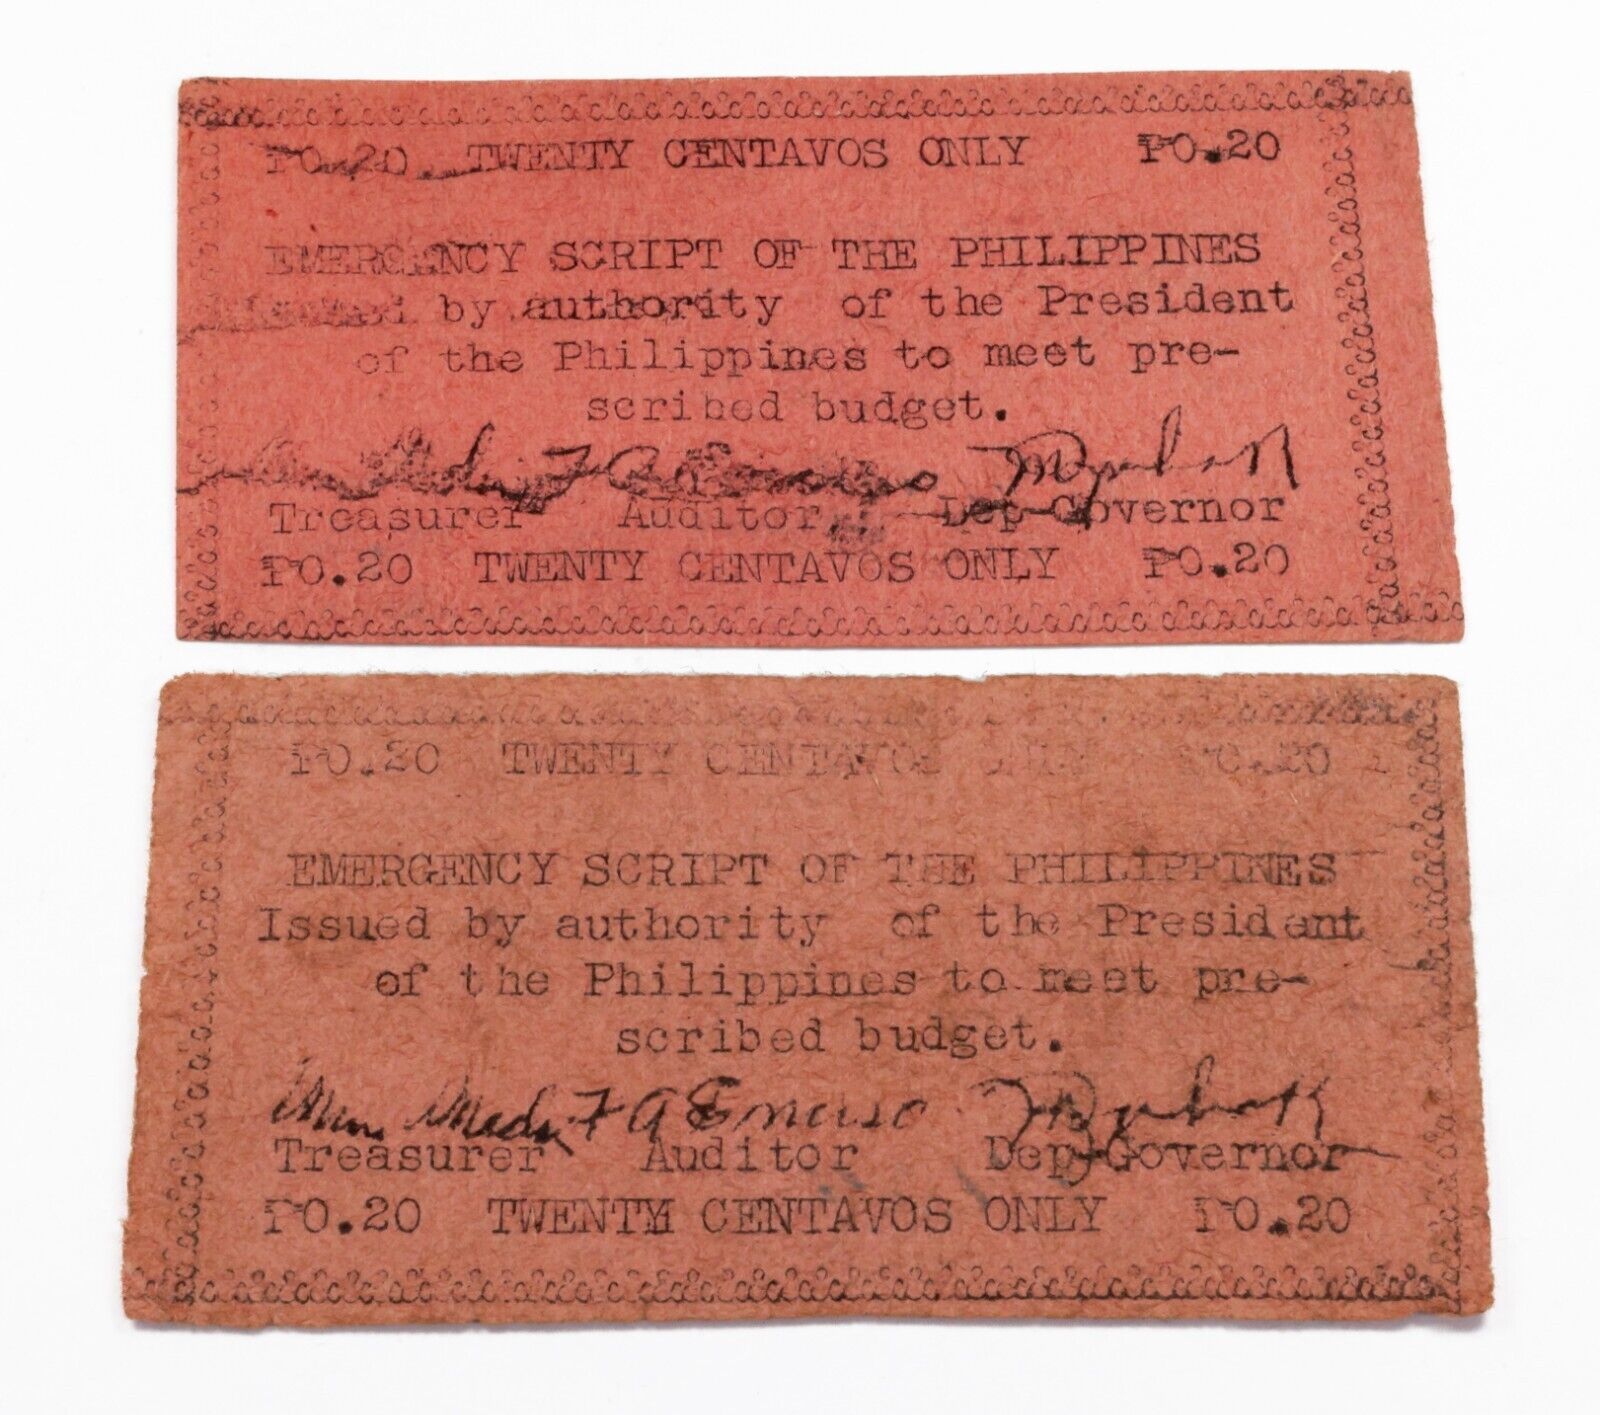 ₱0.20 TWENTY CENTAVOS ONLY ₱0.20
EMERGENCY SCRIPT OF THE PHILIPPINES
by authority of the President
of the Philippines to meet pre-
scribed budget.
Treasurer Auditor Dep-Governor
₱0.20 TWENTY CENTAVOS ONLY ₱0.20
₱0.20 TWENTY CENTAVOS ₱0.20
EMERGENCY SCRIPT OF THE PHILIPPINES
Issued by authority of the President
of the Philippines to meet pre-
scribed budget.
Treasurer Auditor Dep-Governor
₱0.20 TWENTY CENTAVOS ONLY ₱0.20